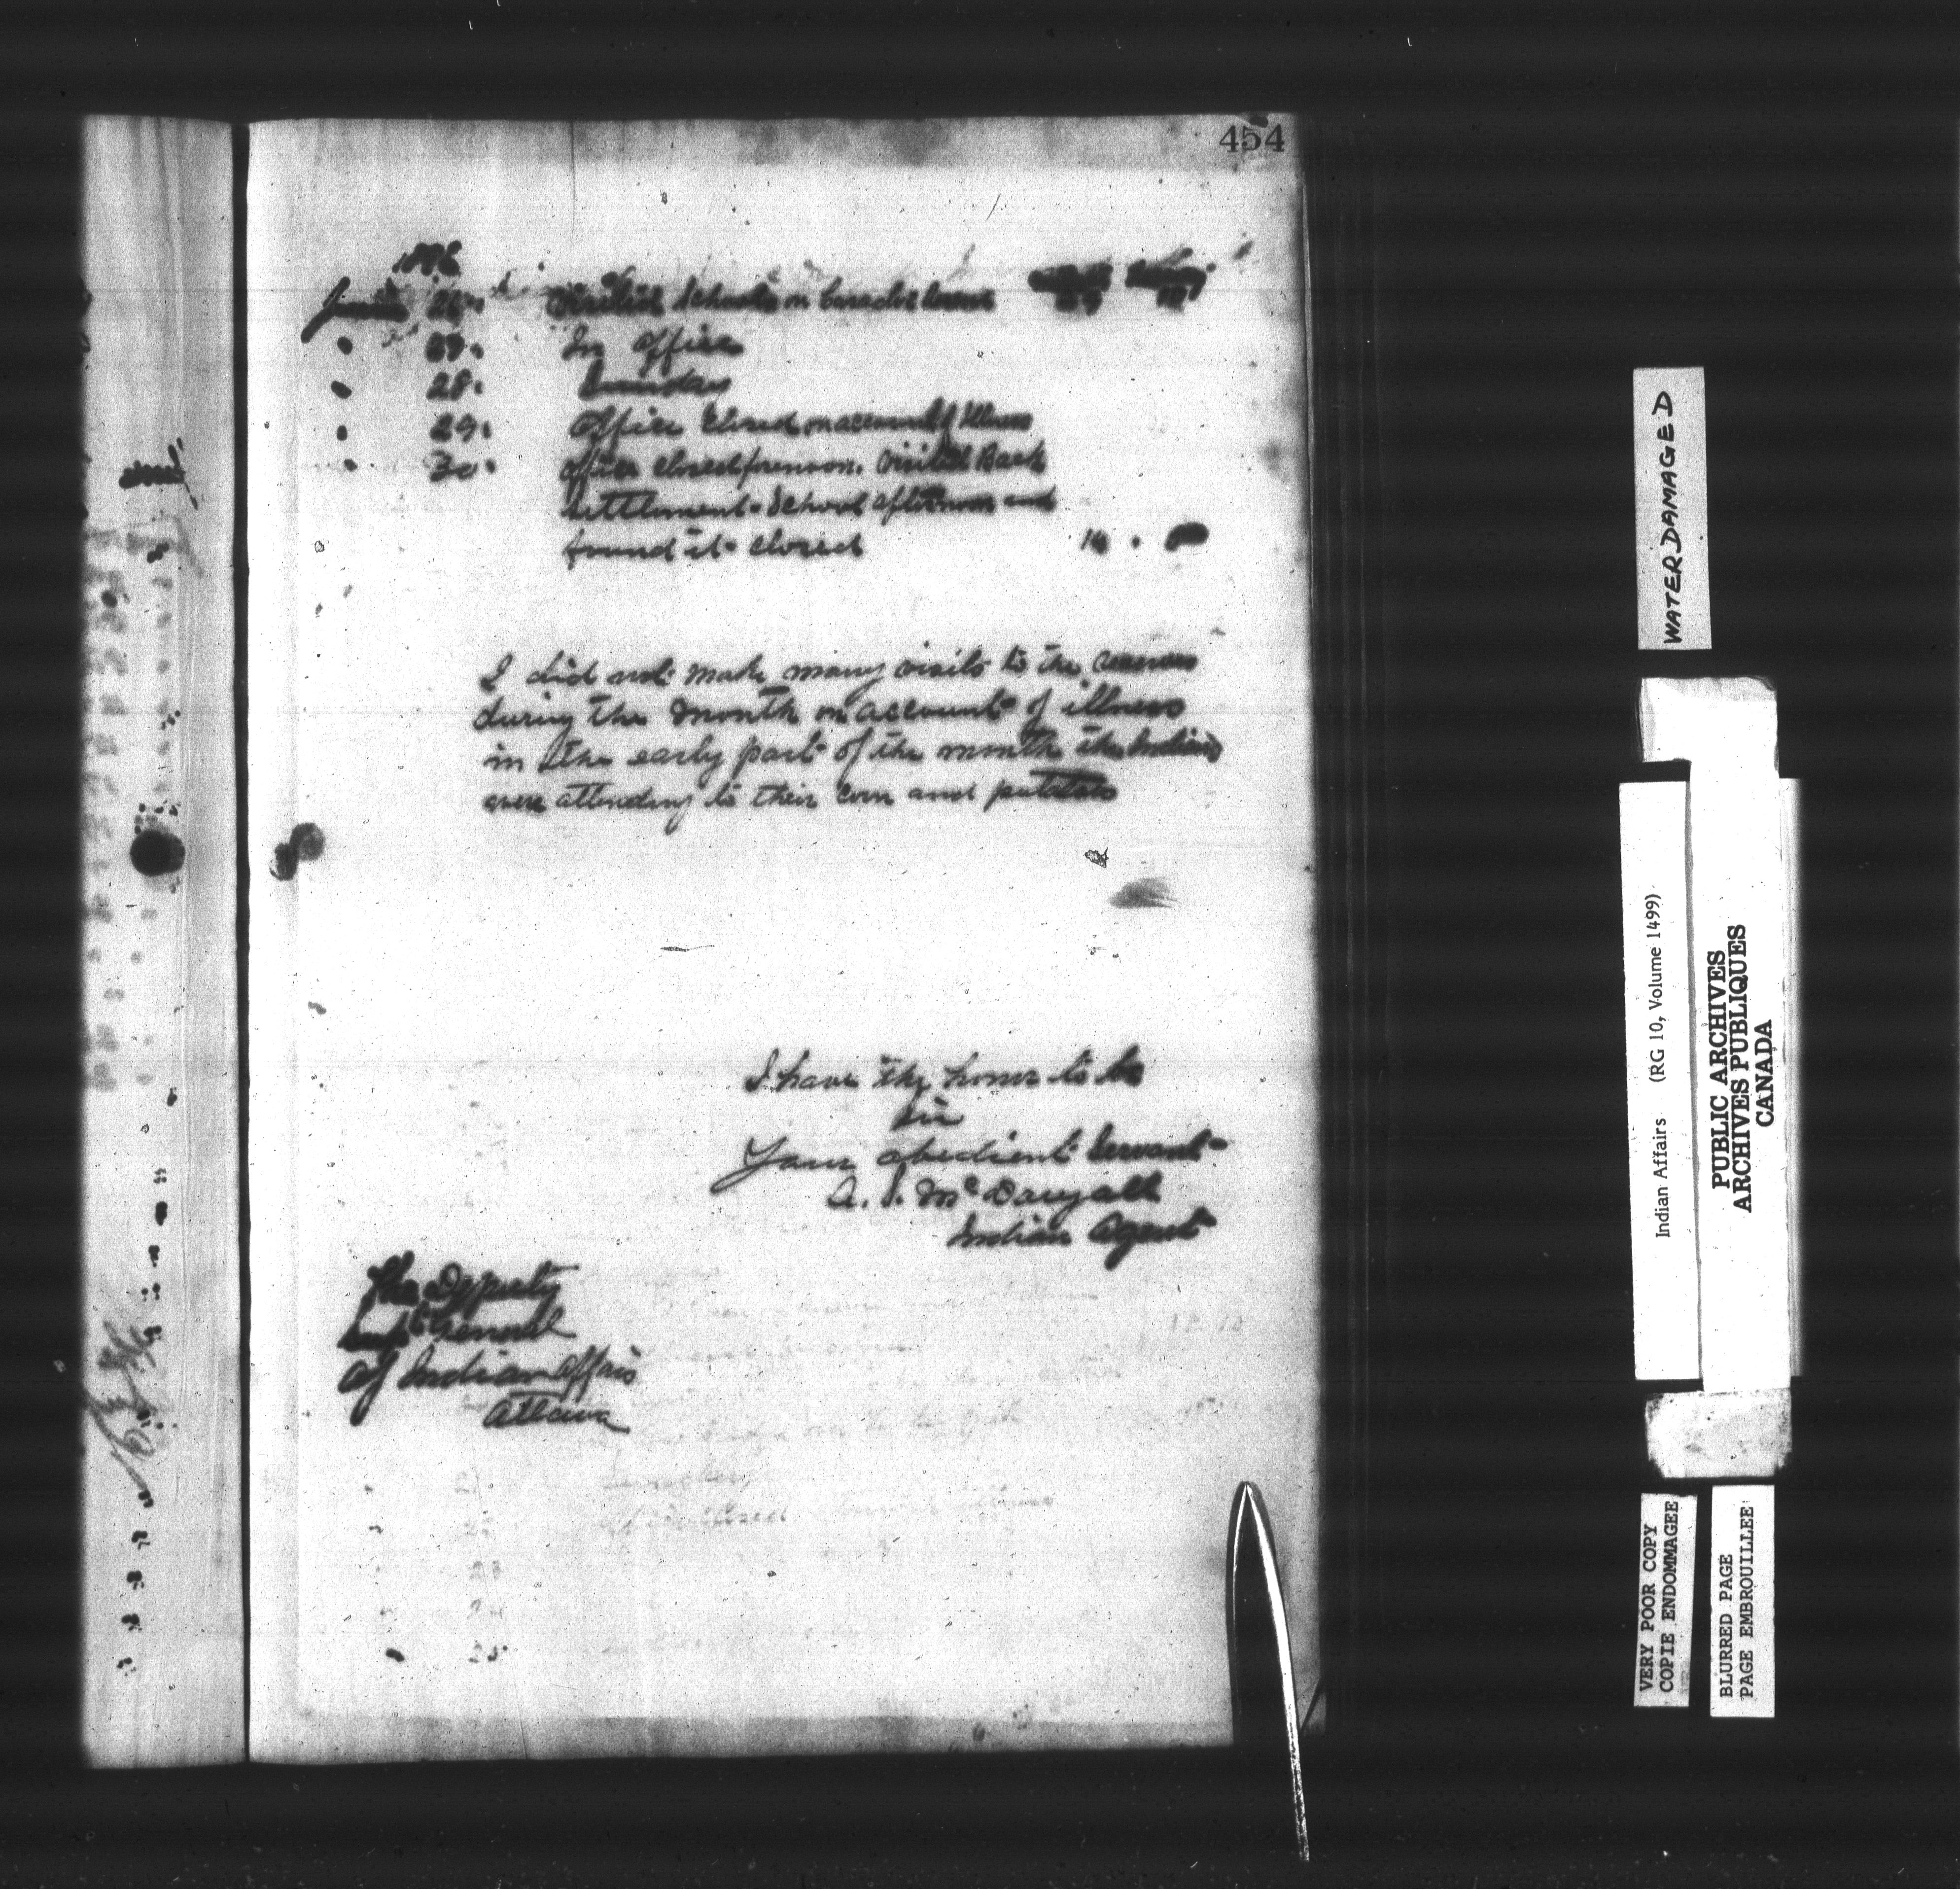 454
1896
June 26. Visited Schools on Caradoc Reserve 29
" 27. In Office
" 28. Sunday
" 29. Office Closed on account of Illness
" 30. Office Closed forenoon. Visited Back
Settlement School afternoon and
found it closed 14 "
I did not make many visits to the reserves
during the month on account of illness
in the early part of the month the Indians
were attending to their Corn and potatoes
I have the honor to be
Sir
Your obedient Servant
A. S. McDougall
Indian Agent
The Deputy
Supt General
of Indian Affairs
Ottawa
WATER DAMAGED
Indian Affairs (RG 10, Volume 1499)
PUBLIC ARCHIVES
ARCHIVES PUBLIQUES
CANADA
VERY POOR COPY
COPIE ENDOMMAGEE
BLURRED PAGE
PAGE EMBROUILLEE